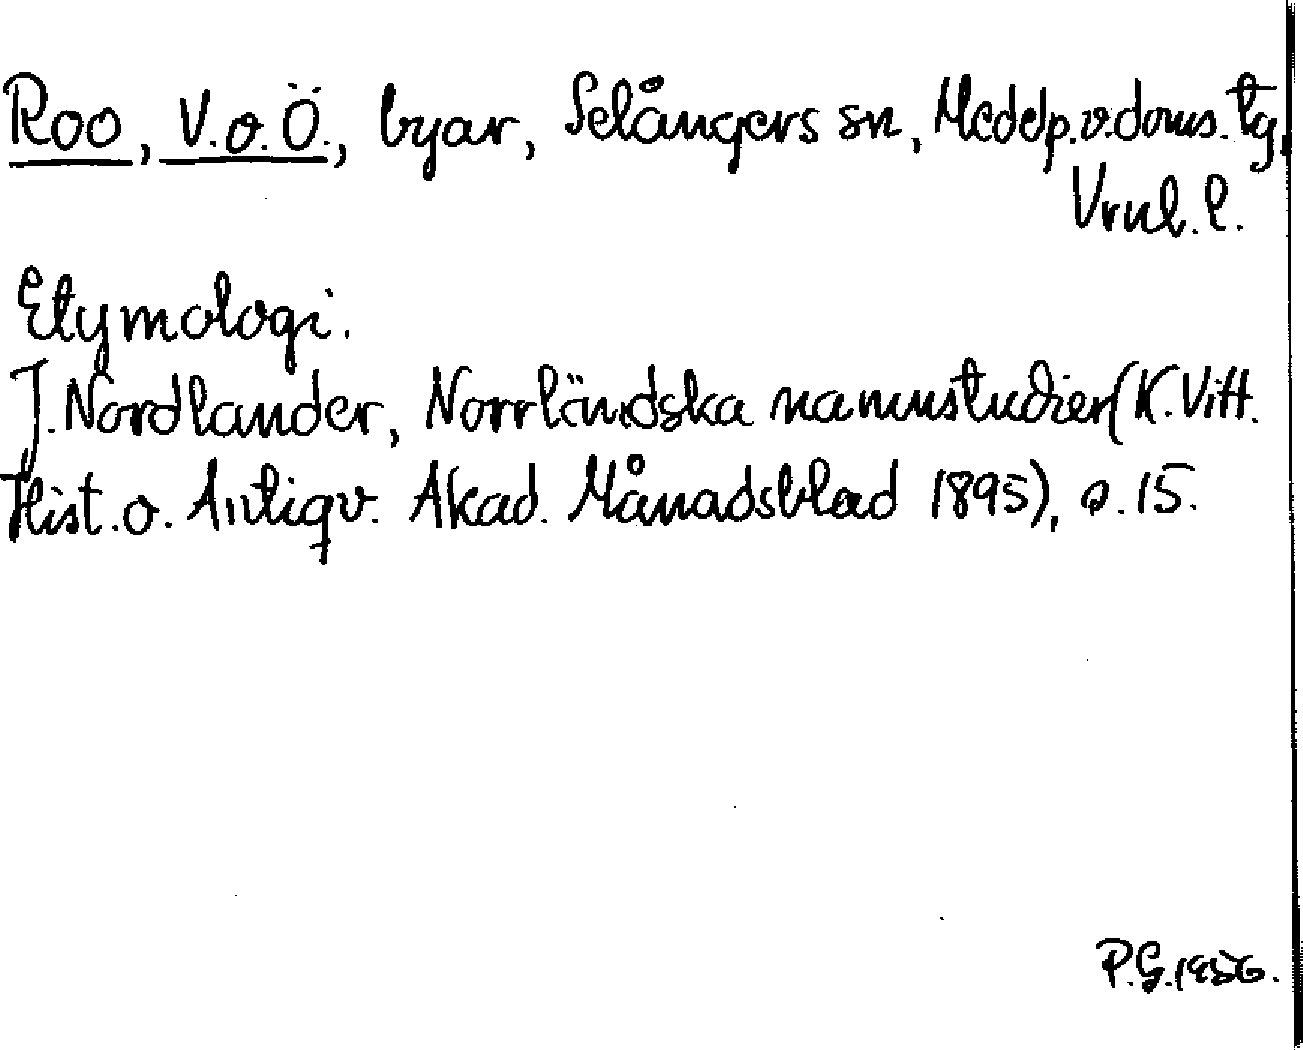 Roo, V. o. Ö., byar, Selångers sn, Medelp. v. doms. tg,
Vrnl. l.
Etymologi.
J. Nordlander, Norrländska namnstudier (K. Vitt.
Hist. o. Antiqv. Akad. Månadsblad 1895), s. 15.
P.G. 1956.